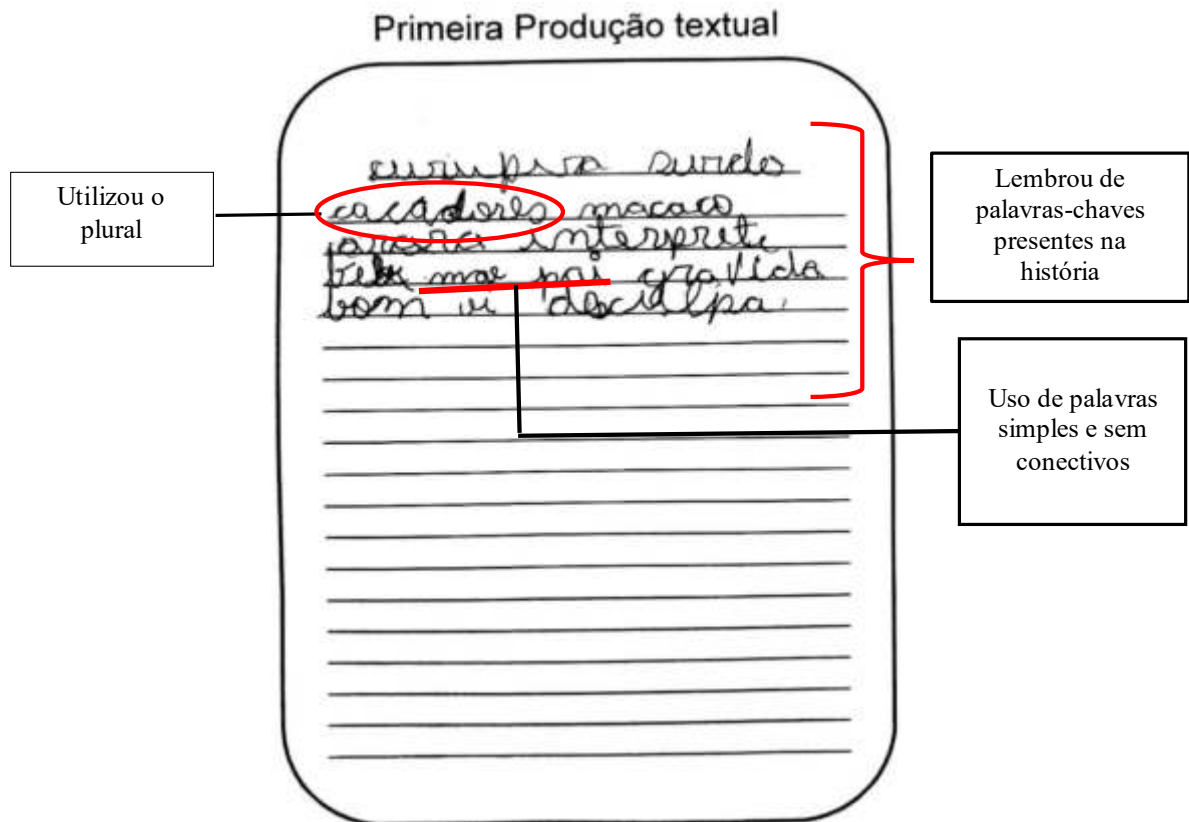 Primeira Produção textual
curupira surdo
cacadores macaco
arara interprete
bebe mae pai gravida
bom desculpa
Utilizou o
plural
Lembrou de
palavras-chaves
presentes na
história
Uso de palavras
simples e sem
conectivos